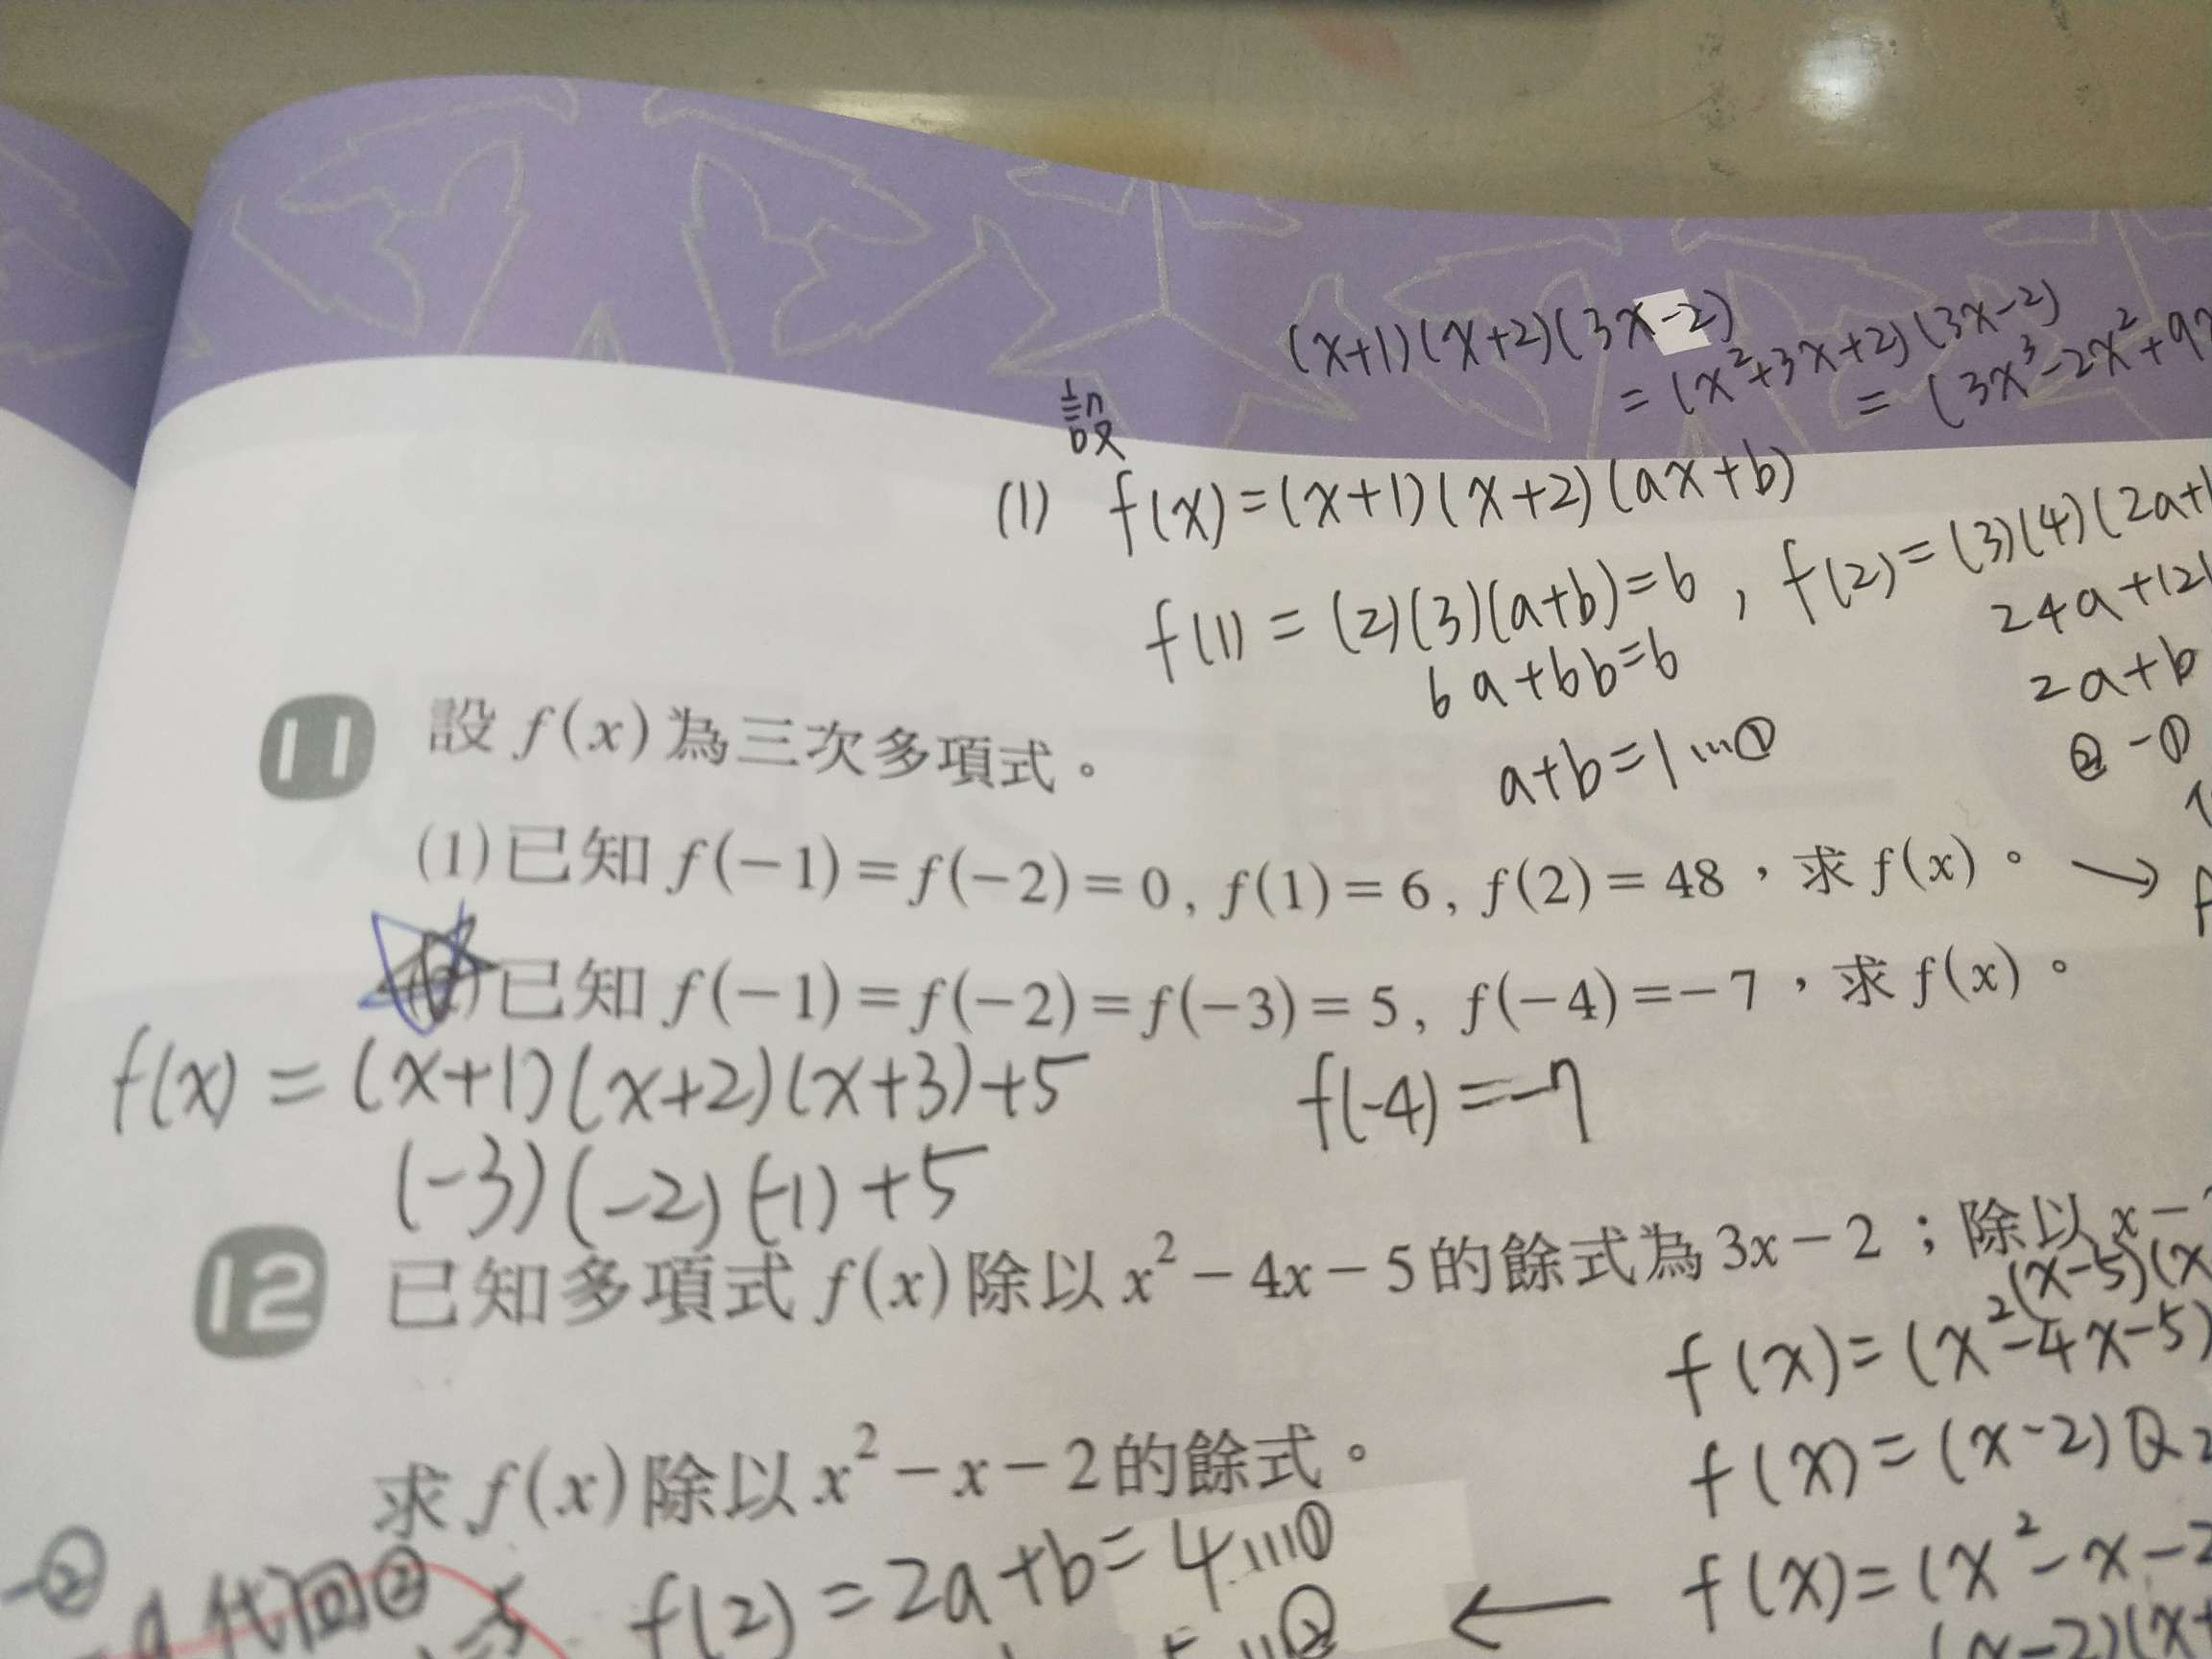 (x+1)(x+2)(3x-2)
=(x²+3x+2)(3x-2)
=(3x³-2x²+9x
設
(1) f(x)=(x+1)(x+2)(ax+b)
f(1)=(2)(3)(a+b)=6, f(2)=(3)(4)(2a+
6a+6b=6
24a+12
a+b=1…①
2a+b
②-①
11 設 f(x) 為三次多項式。
(1) 已知 f(-1)=f(-2)=0, f(1)=6, f(2)=48，求 f(x)。→ f
已知 f(-1)=f(-2)=f(-3)=5, f(-4)=-7，求 f(x)。
f(x)=(x+1)(x+2)(x+3)+5 f(-4)=-7
(-3)(-2)(-1)+5
12 已知多項式 f(x) 除以 x²-4x-5 的餘式為 3x-2；除以 x-
(x-5)(x
f(x)=(x²-4x-5)
f(x)=(x-2)Q2
求 f(x) 除以 x²-x-2 的餘式。
f(2)=2a+b=4…① ← f(x)=(x²-x-2
-②
代回②
…②
(x-2)(x+